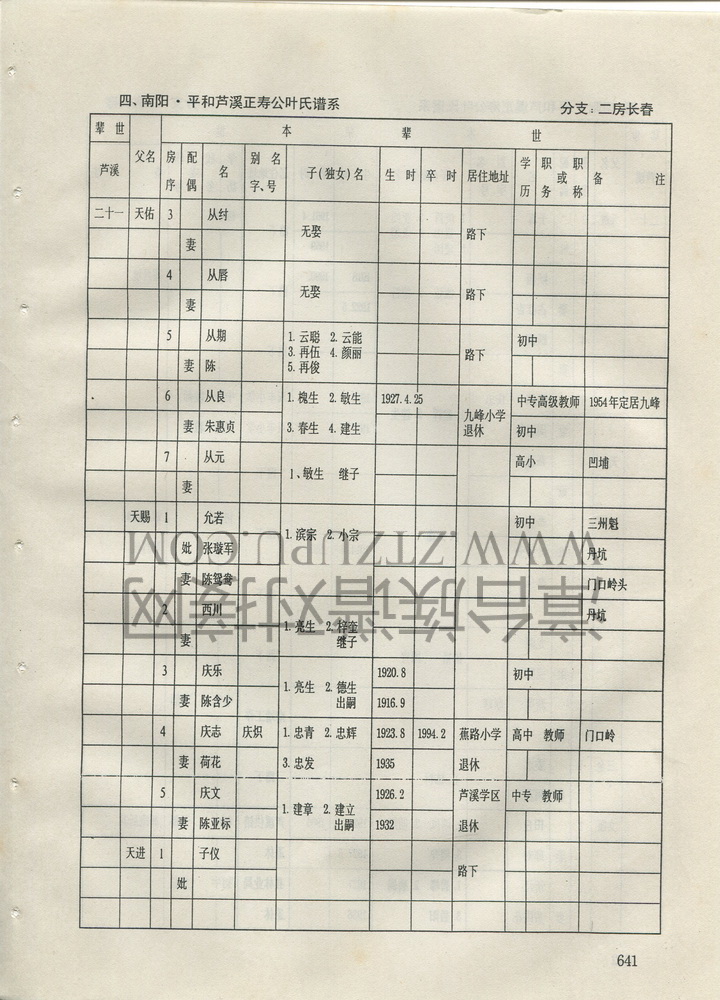 四、南阳·平和芦溪正寿公叶氏谱系 分支：二房长春
辈世 本辈世
芦溪 父名 房序 配偶 名 别名字、号 子(独女)名 生时 卒时 居住地址 学历 职务或职称 备注
二十一 天佑 3 从纣 无娶 路下
妻
4 从唇 无娶 路下
妻
5 从期 1.云聪 2.云能 初中
3.再伍 4.颜丽 路下
妻 陈 5.再俊
6 从良 1.槐生 2.敏生 1927.4.25 中专 高级教师 1954年定居九峰
九峰小学
妻 朱惠贞 3.春生 4.建生 退休 初中
7 从元 高小 凹埔
1、敏生 继子
妻
天赐 1 允若 初中 三州魁
1.滨宗 2.小宗
妣 张璇军 丹坑
妻 陈鸳鸯 门口岭头
2 西川 丹坑
1.亮生 2.梓奎
妻 继子
3 庆乐 1920.8 初中
1.亮生 2.德生
妻 陈含少 出嗣 1916.9
4 庆志 庆炽 1.忠青 2.忠辉 1923.8 1994.2 蕉路小学 高中 教师 门口岭
妻 荷花 3.忠发 1935 退休
5 庆文 1926.2 芦溪学区 中专 教师
1.建章 2.建立
妻 陈亚标 出嗣 1932 退休
天进 1 子仪 路下
妣
641
漳台族谱对接网
WWW.ZTZUPU.COM